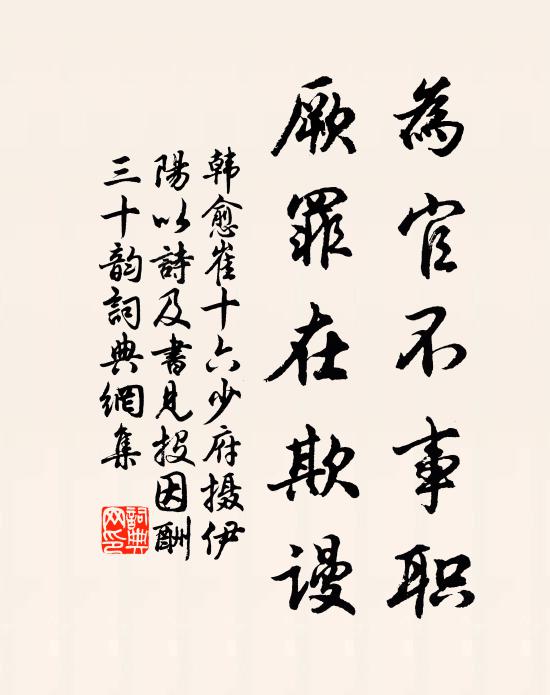 為官不事职
厥罪在欺谩
韩愈崔十六少府摄伊
陽以詩及書見投因酬
三十韵詞典網集
詞典
网印